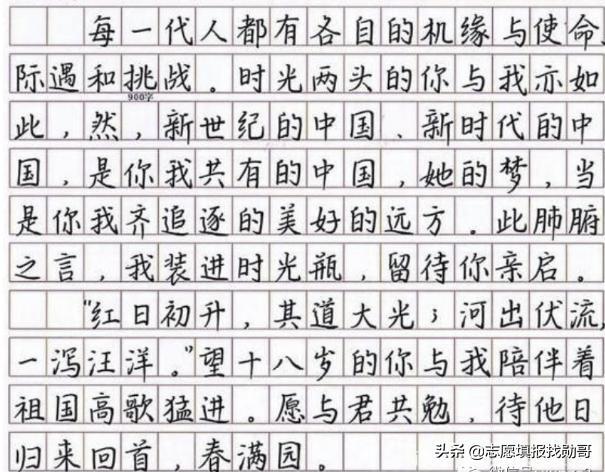 每一代人都有各自的机缘与使命、
际遇和挑战。时光两头的你与我亦如
900字
此，然，新世纪的中国、新时代的中
国，是你我共有的中国，她的梦，当
是你我齐追逐的美好的远方。此肺腑
之言，我装进时光瓶，留待你亲启。
“红日初升，其道大光；河出伏流，
一泻汪洋。”望十八岁的你与我陪伴着
祖国高歌猛进。愿与君共勉，待他日
归来回首，春满园。
头条 @志愿填报找勋哥